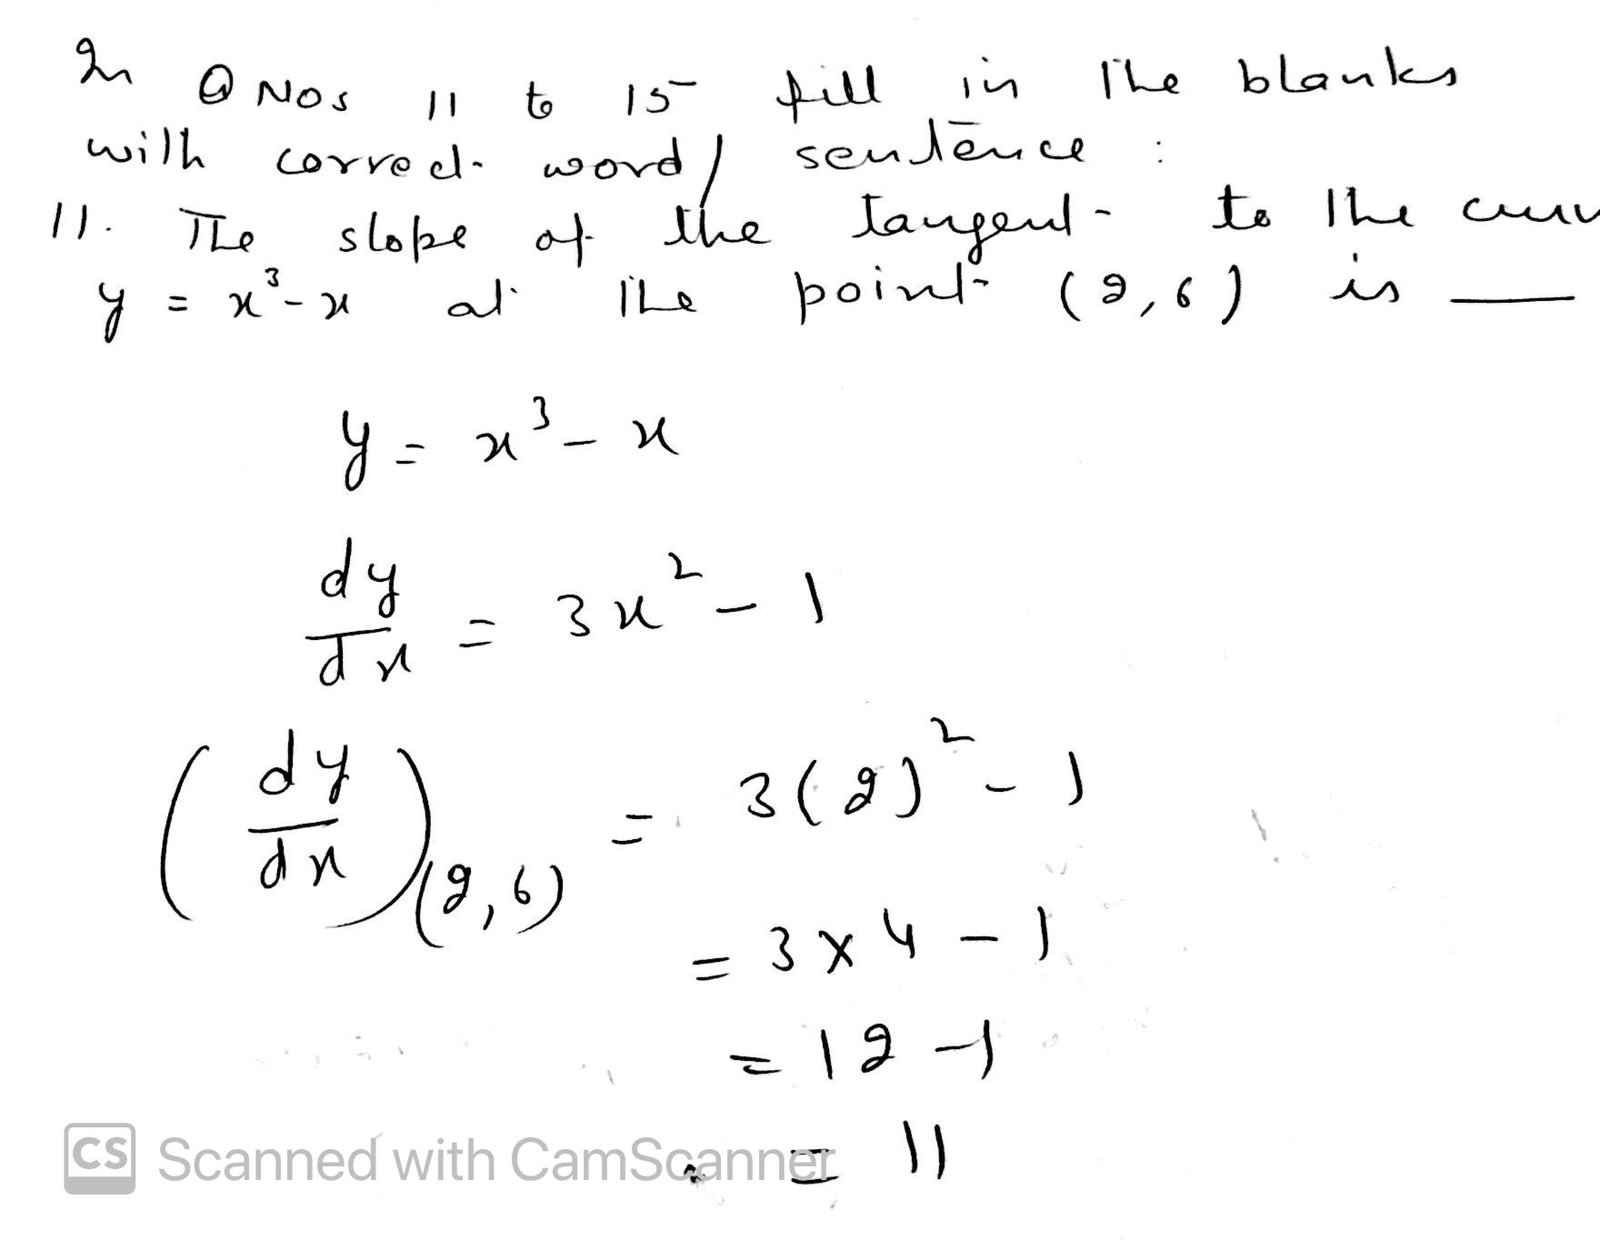 In Q Nos 11 to 15 fill in the blanks
with correct word/ sentence :
11. The slope of the tangent to the curv
y = x³-x at the point (2,6) is ___
y = x³ - x
dy/dx = 3x² - 1
(dy/dx)(2,6) = 3(2)² - 1
= 3 x 4 - 1
= 12 - 1
= 11
CS Scanned with CamScanner